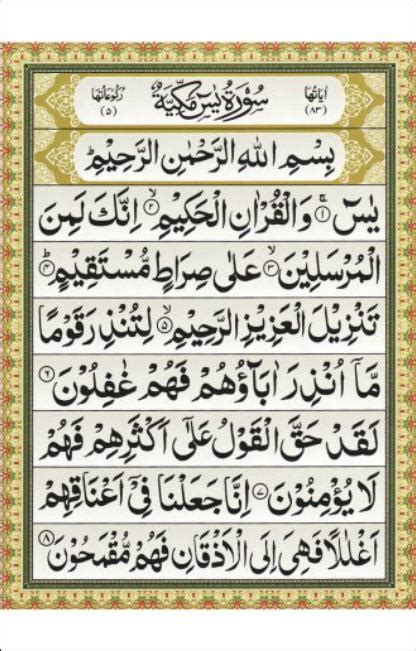 اٰيَاتُهَا (۸۳) سُوْرَةُ يٰسٓ مَكِّيَّةٌ رُكُوْعَاتُهَا (۵)
بِسْمِ اللهِ الرَّحْمٰنِ الرَّحِيْمِ
يٰسٓ ۝۱ وَالْقُرْاٰنِ الْحَكِيْمِ ۝۲ اِنَّكَ لَمِنَ
الْمُرْسَلِيْنَ ۝۳ عَلٰى صِرَاطٍ مُّسْتَقِيْمٍ ۝۴
تَنْزِيْلَ الْعَزِيْزِ الرَّحِيْمِ ۝۵ لِتُنْذِرَ قَوْمًا
مَّاۤ اُنْذِرَ اٰبَآؤُهُمْ فَهُمْ غٰفِلُوْنَ ۝۶
لَقَدْ حَقَّ الْقَوْلُ عَلٰۤى اَكْثَرِهِمْ فَهُمْ
لَا يُؤْمِنُوْنَ ۝۷ اِنَّا جَعَلْنَا فِيْۤ اَعْنَاقِهِمْ
اَغْلٰلًا فَهِيَ اِلَى الْاَذْقَانِ فَهُمْ مُّقْمَحُوْنَ ۝۸